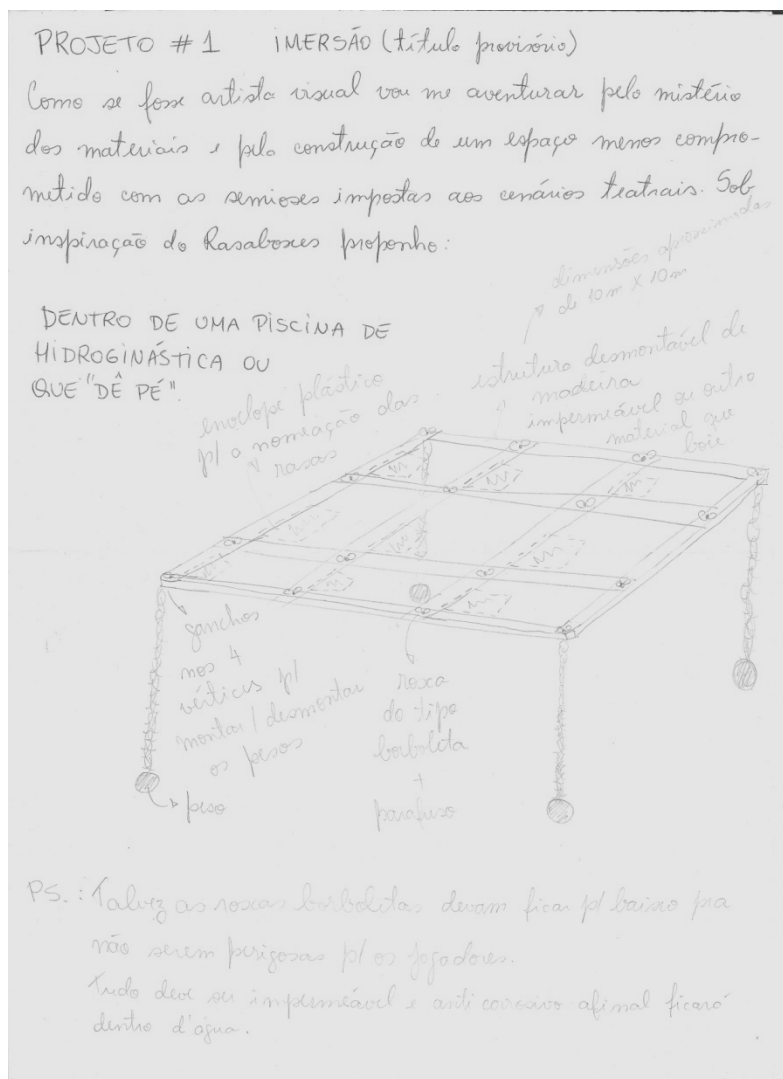 PROJETO # 1 IMERSÃO (título provisório)
Como se fosse artista visual vou me aventurar pelo mistério
dos materiais e pela construção de um espaço menos compro-
metido com as semioses impostas aos cenários teatrais. Sob
inspiração do Rasaboxes proponho:
dimensões aproximadas
de 10m X 10m
DENTRO DE UMA PISCINA DE
HIDROGINÁSTICA OU
QUE "DÊ PÉ".
envelope plástico
p/ a nomeação das
rasas
estrutura desmontável de
madeira
impermeável ou outro
material que
boie
ganchos
nos 4
vértices p/
montar/desmontar
os pesos
peso
rosca
do tipo
borboleta
+
parafuso
PS.: Talvez as roscas borboletas devam ficar p/ baixo pra
não serem perigosas p/ os jogadores.
Tudo deve ser impermeável e anti corrosivo afinal ficará
dentro d'água.